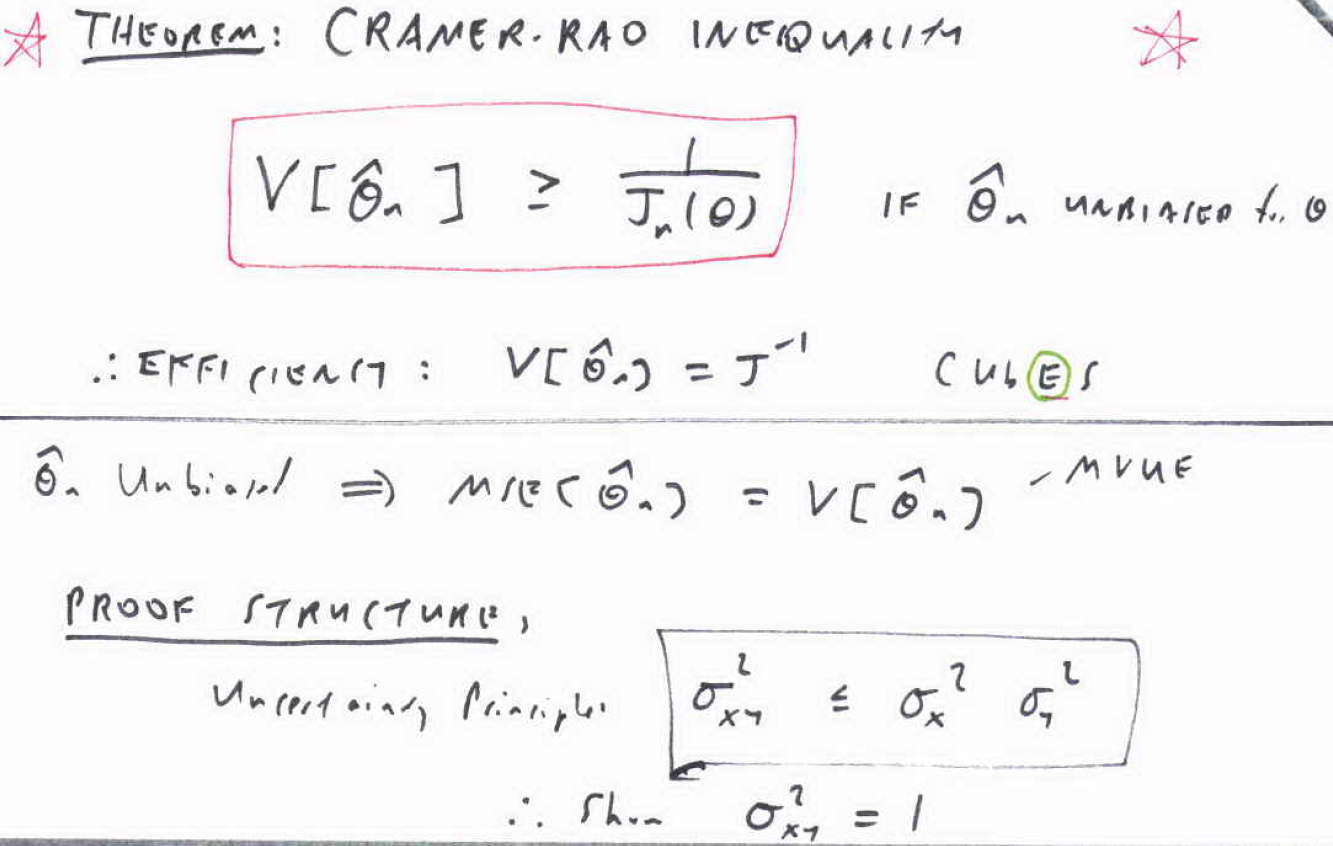 THEOREM: CRAMER-RAO INEQUALITY
V[θ̂ₙ] ≥ 1/Jₙ(θ) IF θ̂ₙ UNBIASED for θ
∴ EFFICIENCY: V[θ̂ₙ] = J⁻¹ CUbES
θ̂ₙ Unbiased ⇒ MSE(θ̂ₙ) = V[θ̂ₙ] - MVUE
PROOF STRUCTURE:
Uncertainty Principle: σ²xy ≤ σx² σy²
∴ Show σ²xy = 1